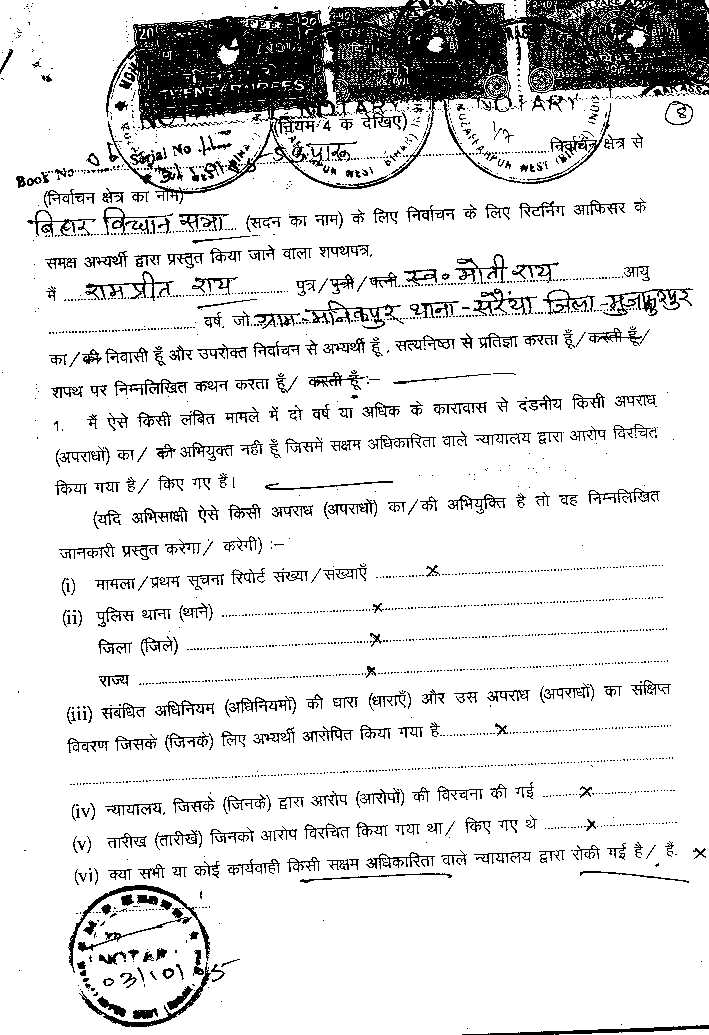 NOTARY NOTARY
(नियम 4 क देखिए)
8
1/7
Book No 01 Serial No
पारू निर्वाचन क्षेत्र से
(निर्वाचन क्षेत्र का नाम)
बिहार विधान सभा (सदन का नाम) के लिए निर्वाचन के लिए रिटर्निंग आफिसर के
समक्ष अभ्यर्थी द्वारा प्रस्तुत किया जाने वाला शपथपत्र,
मैं रामप्रीत राय पुत्र/पुत्री/पत्नी स्व० मोती राय आयु
वर्ष, जो ग्राम-मनिकपुर थाना-सरैया जिला-मुजफ्फरपुर
का/की निवासी हूँ और उपरोक्त निर्वाचन से अभ्यर्थी हूँ, सत्यनिष्ठा से प्रतिज्ञा करता हूँ/करती हूँ/
शपथ पर निम्नलिखित कथन करता हूँ/ करती हूँ:-
1. मैं ऐसे किसी लंबित मामले में दो वर्ष या अधिक के कारावास से दंडनीय किसी अपराध
(अपराधों) का/ की अभियुक्त नही हूँ जिसमें सक्षम अधिकारिता वाले न्यायालय द्वारा आरोप विरचित
किया गया है/ किए गए हैं।
(यदि अभिसाक्षी ऐसे किसी अपराध (अपराधों) का/की अभियुक्ति है तो वह निम्नलिखित
जानकारी प्रस्तुत करेगा/ करेगी) :-
(i) मामला/प्रथम सूचना रिपोर्ट संख्या/संख्याएँ ........ x
(ii) पुलिस थाना (थाने) ........ x
जिला (जिले) ........ x
राज्य ........ x
(iii) संबंधित अधिनियम (अधिनियमों) की धारा (धाराएँ) और उस अपराध (अपराधों) का संक्षिप्त
विवरण जिसके (जिनके) लिए अभ्यर्थी आरोपित किया गया है........ x
(iv) न्यायालय, जिसके (जिनके) द्वारा आरोप (आरोपों) की विरचना की गई ........ x
(v) तारीख (तारीखें) जिनको आरोप विरचित किया गया था/ किए गए थे ........ x
(vi) क्या सभी या कोई कार्यवाही किसी सक्षम अधिकारिता वाले न्यायालय द्वारा रोकी गई है/ हैं. x
NOTARY
03/10/